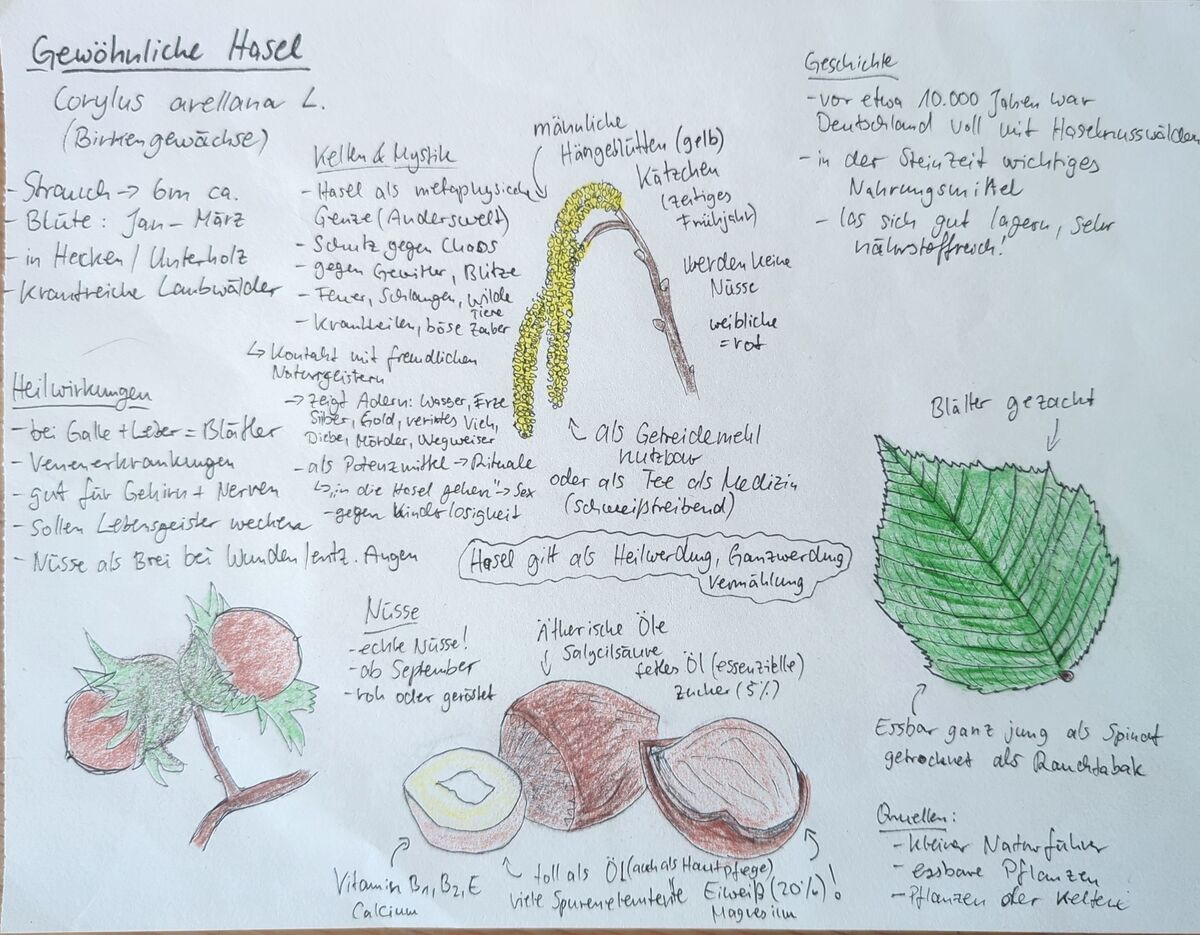 Gewöhnliche Hasel
Corylus avellana L.
(Birkengewächse)
- Strauch → 6m ca.
- Blüte: Jan – März
- in Hecken / Unterholz
- krautreiche Laubwälder
Kelten & Mystik
- Hasel als metaphysische
Grenze (Anderswelt)
- Schutz gegen Chaos
- gegen Gewitter, Blitze
- Feuer, Schlangen, wilde
Tiere
- Krankheiten, böse Zauber
↳ Kontakt mit freundlichen
Naturgeistern
→ zeigt Adern: Wasser, Erze
Silber, Gold, verirrtes Vieh,
Diebe, Mörder, Wegweiser
- als Potenzmittel → Rituale
↳ „in die Hasel gehen" → Sex
- gegen Kinderlosigkeit
männliche
Hängeblüten (gelb)
Kätzchen
(zeitiges
Frühjahr)
werden keine
Nüsse
weibliche
= rot
↖ als Getreidemehl
nutzbar
oder als Tee als Medizin
(schweißtreibend)
Geschichte
- vor etwa 10.000 Jahren war
Deutschland voll mit Haselnusswäldern
- in der Steinzeit wichtiges
Nahrungsmittel
- las sich gut lagern, sehr
nährstoffreich!
Heilwirkungen
- bei Galle + Leber = Blätter
- Venenerkrankungen
- gut für Gehirn + Nerven
- Sollen Lebensgeister wecken
- Nüsse als Brei bei Wunden / entz. Augen
Hasel gilt als Heilwerdung, Ganzwerdung
Vermählung
Blätter gezackt
Essbar ganz jung als Spinat
getrocknet als Rauchtabak
Nüsse
- echte Nüsse!
- ab September
- roh oder geröstet
Ätherische Öle
Salycilsäure
fettes Öl (essenzielle)
Zucker (5%)
Vitamin B1, B2, E
Calcium
toll als Öl (auch als Hautpflege)
viele Spurenelemente
Eiweiß (20%)!
Magnesium
Quellen:
- kleiner Naturführer
- essbare Pflanzen
- Pflanzen der Kelten